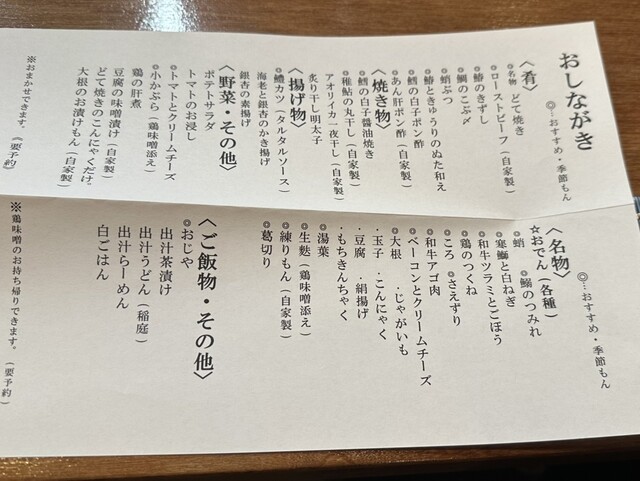 おしながき
◎…おすすめ・季節もん
〈肴〉
◎名物 どて焼き
◎ローストビーフ（自家製）
◎鰆のきずし
◎鯛のこぶ〆
◎蛸ぶつ
◎鰆ときゅうりのぬた和え
◎鱈の白子ポン酢
◎あん肝ポン酢（自家製）
〈焼き物〉
◎鱈の白子醤油焼き
◎稚鮎の丸干し（自家製）
アオリイカ一夜干し（自家製）
炙り干し明太子
〈揚げ物〉
◎鱧カツ（タルタルソース）
海老と銀杏のかき揚げ
銀杏の素揚げ
〈野菜・その他〉
ポテトサラダ
トマトのお浸し
◎トマトとクリームチーズ
◎小かぶら（鶏味噌添え）
鶏の肝煮
豆腐の味噌漬け（自家製）
どて焼きのこんにゃくだけ。
大根のお漬けもん（自家製）
※おまかせできます。（要予約）
◎…おすすめ・季節もん
〈名物〉
☆おでん（各種）
◎蛸 ◎鰯のつみれ
◎寒鰤と白ねぎ
◎和牛ツラミとごぼう
◎鶏のつくね
◎ころ ◎さえずり
◎和牛アゴ肉
◎ベーコンとクリームチーズ
◎大根 ・じゃがいも
・玉子 ・こんにゃく
・豆腐 ・絹揚げ
・もちきんちゃく
◎湯葉
◎生麩（鶏味噌添え）
◎練りもん（自家製）
◎葛切り
〈ご飯物・その他〉
◎おじや
出汁茶漬け
出汁うどん（稲庭）
出汁らーめん
白ごはん
※鶏味噌のお持ち帰りできます。（要予約）